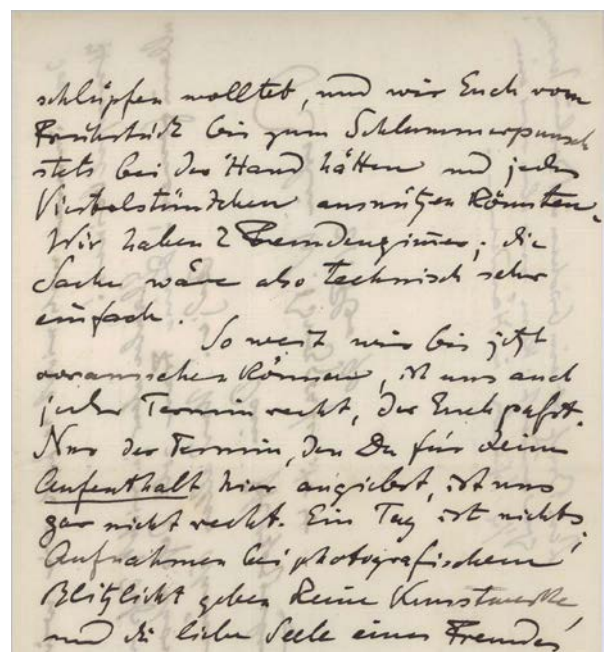 schlüpfen wolltet, und wir Euch vom
Frühstück bis zum Schlummerpunsch
stets bei der Hand hätten und jedes
Viertelstündchen ausnützen könnten.
Wir haben 2 Fremdenzim̅er; die
Sache wäre also technisch sehr
einfach.
So weit wir bis jetzt
voraussehen können, ist uns auch
jeder Termin recht, der Euch paßt.
Nur der Termin, den Du für Deinen
Aufenthalt hier angiebst, ist uns
gar nicht recht. Ein Tag ist nichts;
Aufnahmen bei photografischem
Blitzlicht geben keine Kunstwerke,
und die liebe Seele eines Freundes